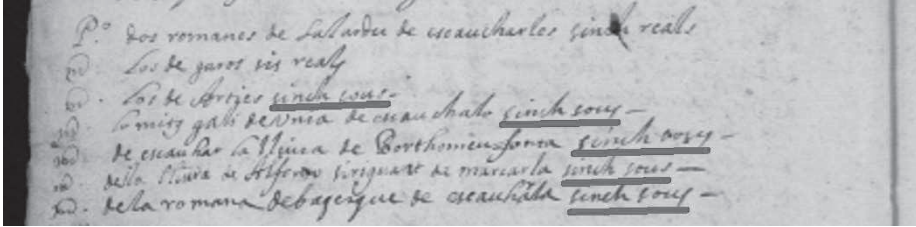 P.º dos romanes de Lasardeu de escaucharles sinch reals
los de garos sis reals
los de Artjes sinch sous
lo mitg gali de Unia de escauchala sinch sous
de escauchar la lliura de Borthomeu fonta sinch sous
de la lliura de Alfonso siriguant de marcarla sinch sous
de la romana de bagergue de escauchala sinch sous